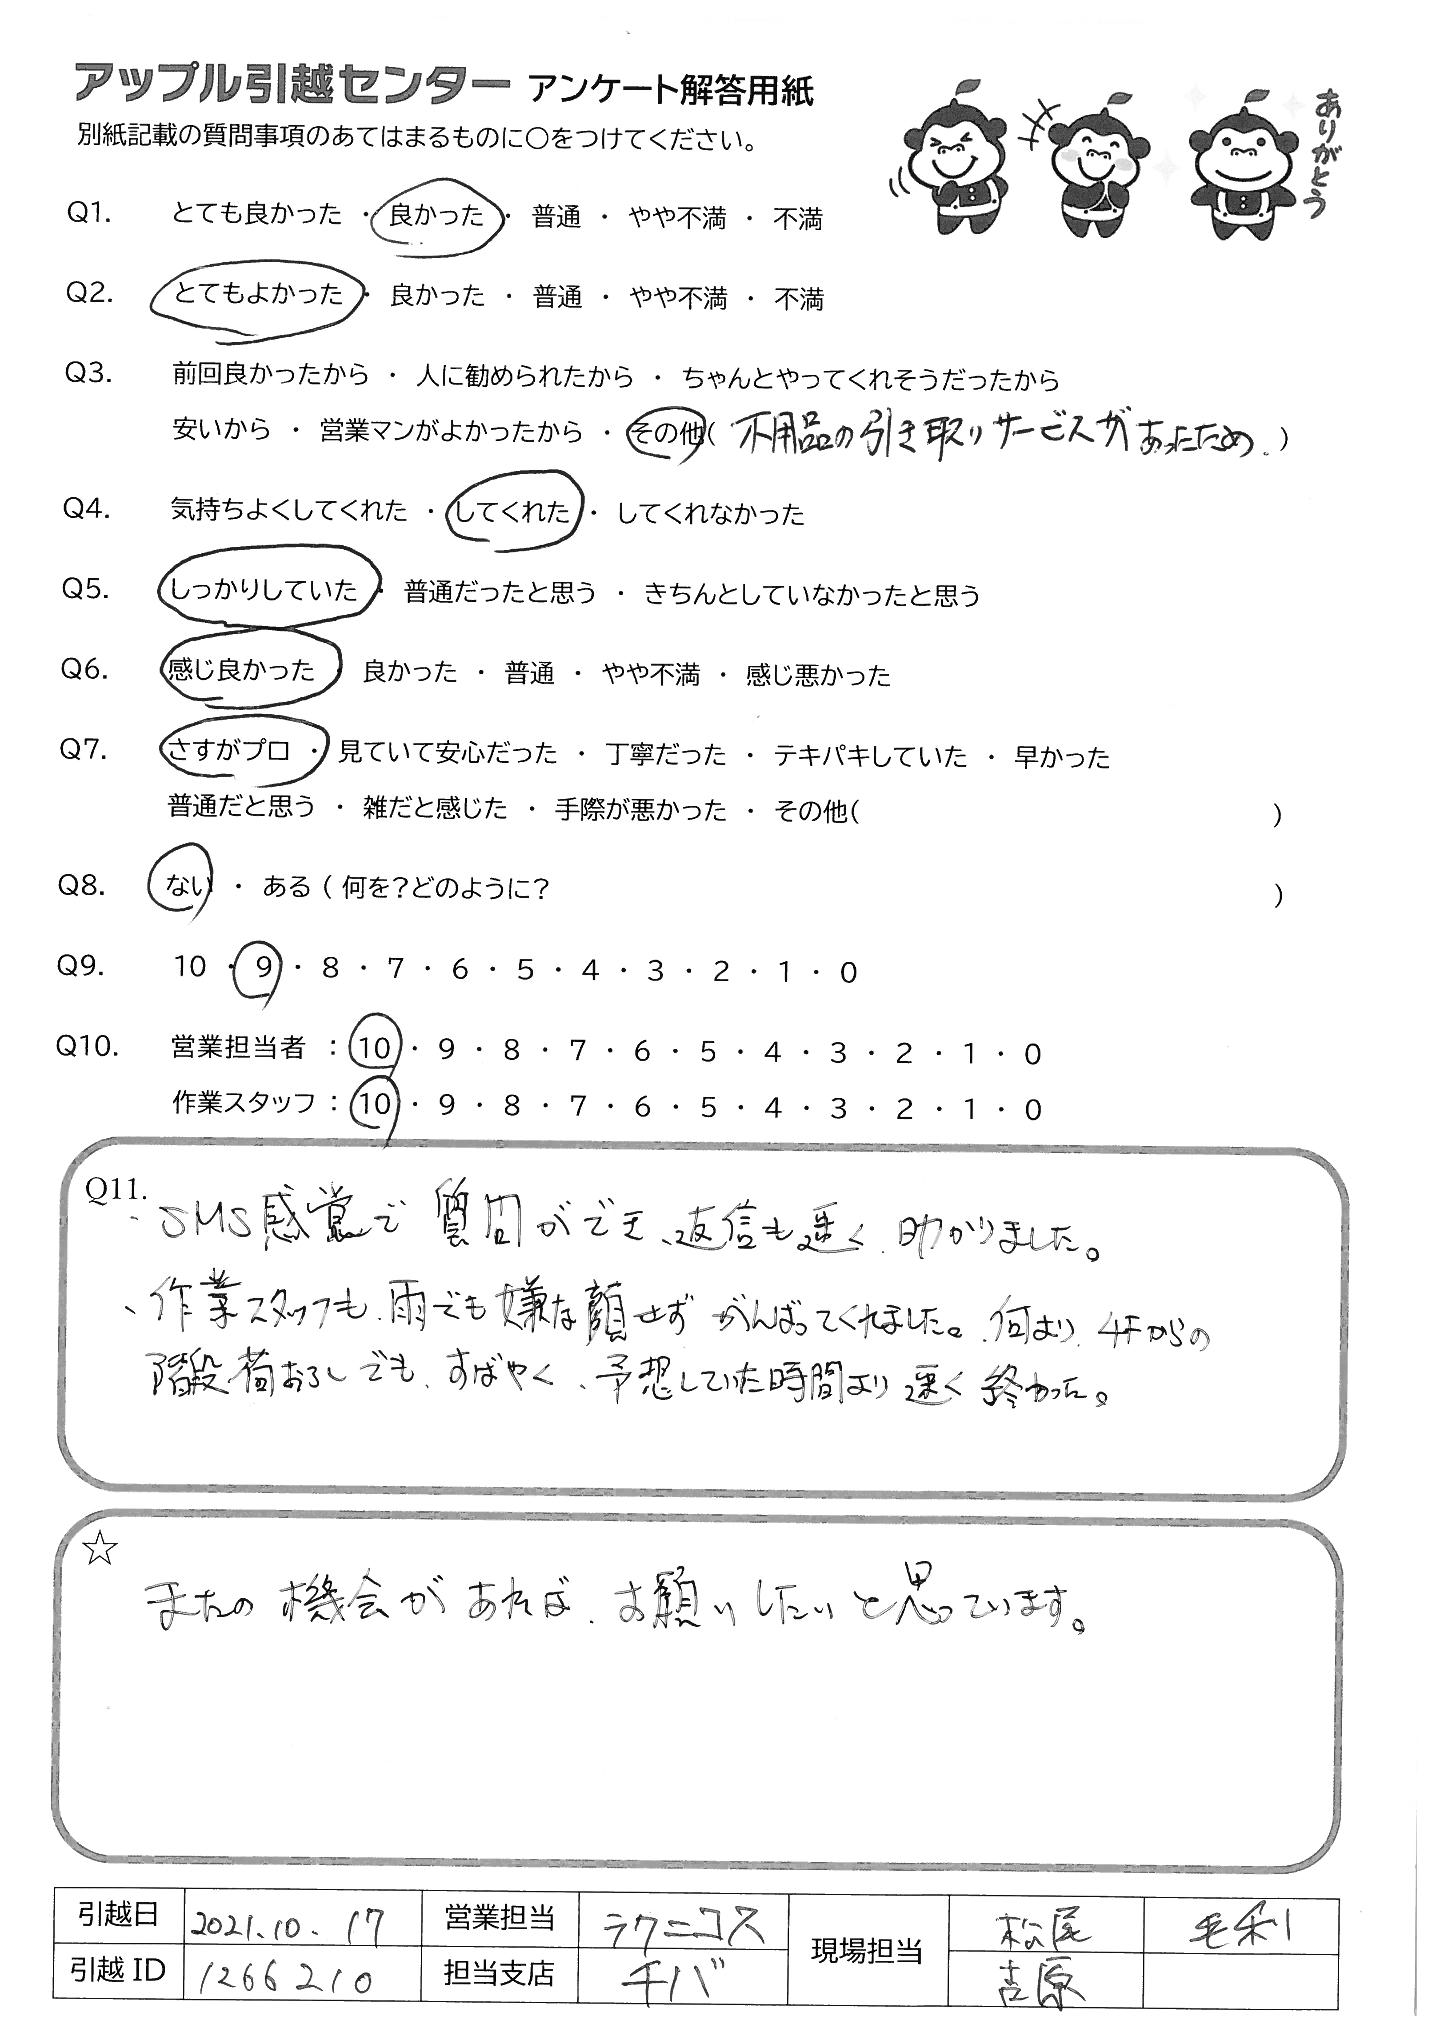 アップル引越センター アンケート解答用紙
別紙記載の質問事項のあてはまるものに○をつけてください。
ありがとう
Q1. とても良かった ・ 良かった ・ 普通 ・ やや不満 ・ 不満
Q2. とてもよかった ・ 良かった ・ 普通 ・ やや不満 ・ 不満
Q3. 前回良かったから ・ 人に勧められたから ・ ちゃんとやってくれそうだったから
安いから ・ 営業マンがよかったから ・ その他( 不用品の引き取りサービスがあったため。)
Q4. 気持ちよくしてくれた ・ してくれた ・ してくれなかった
Q5. しっかりしていた ・ 普通だったと思う ・ きちんとしていなかったと思う
Q6. 感じ良かった 良かった ・ 普通 ・ やや不満 ・ 感じ悪かった
Q7. さすがプロ ・ 見ていて安心だった ・ 丁寧だった ・ テキパキしていた ・ 早かった
普通だと思う ・ 雑だと感じた ・ 手際が悪かった ・ その他( )
Q8. ない ・ ある ( 何を?どのように? )
Q9. 10 ・ 9 ・ 8 ・ 7 ・ 6 ・ 5 ・ 4 ・ 3 ・ 2 ・ 1 ・ 0
Q10. 営業担当者 : 10 ・ 9 ・ 8 ・ 7 ・ 6 ・ 5 ・ 4 ・ 3 ・ 2 ・ 1 ・ 0
作業スタッフ : 10 ・ 9 ・ 8 ・ 7 ・ 6 ・ 5 ・ 4 ・ 3 ・ 2 ・ 1 ・ 0
Q11.
・SMS感覚で質問ができ、返信も速く、助かりました。
・作業スタッフも、雨でも嫌な顔せずがんばってくれました。何より、4Fからの
階段荷おろしでも、すばやく、予想していた時間より速く終わった。
☆
またの機会があれば、お願いしたいと思っています。
引越日 2021.10.17 営業担当 ラクニコス 現場担当 松尾 毛利
引越ID 1266210 担当支店 チバ 吉原